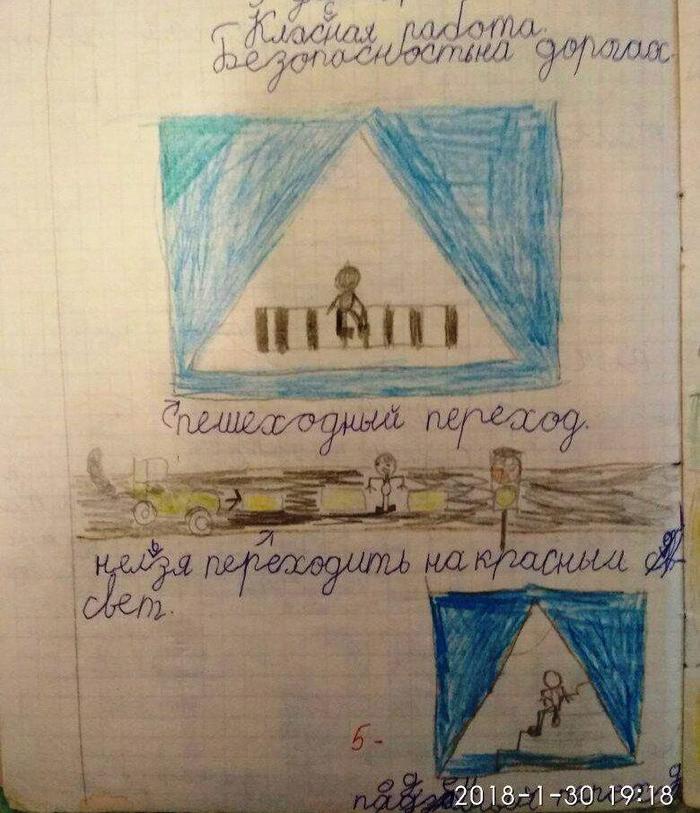 Класная работа.
с
Безопасностьна дорогах
пешеходный переход.
нелзя переходить на красный
ь
свет.
5-
2018-1-30 19:18